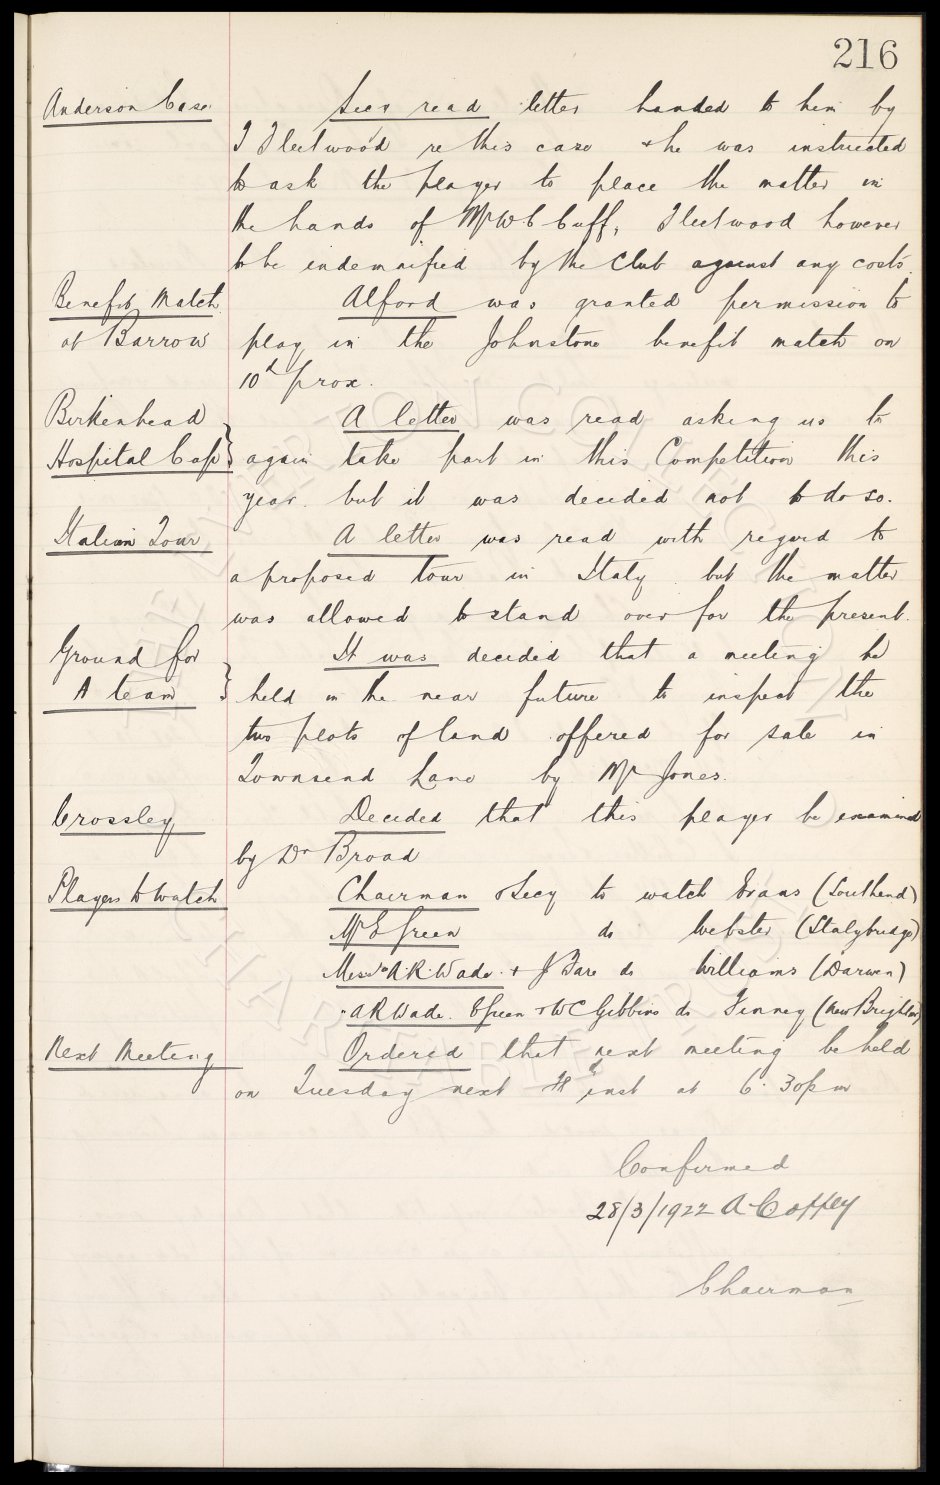 216
Anderson Case. Secy read letter handed to him by
T Fleetwood re this case & he was instructed
to ask the player to place the matter in
the hands of Mr W C Cuff, Fleetwood however
to be indemnified by the Club against any costs.
Benefit Match Alford was granted permission to
at Barrow play in the Johnstone benefit match on
10th prox.
Birkenhead A letter was read asking us to
Hospital Cup again take part in this Competition this
year. but it was decided not to do so.
Italian Tour A letter was read with regard to
a proposed tour in Italy. but the matter
was allowed to stand over for the present.
Ground for It was decided that a meeting be
A team held in the near future to inspect the
two plots of land offered for sale in
Townsend Lane by Mr Jones.
Crossley Decided that this player be examined
by Dr Broad
Players to Watch Chairman & Secy to watch Evans (Southend)
Mr E Green do Webster (Stalybridge)
Messrs A.R. Wade. & J Fare do Williams (Darwen)
" A R Wade. E Green & W C Gibbins do Finney (New Brighton)
Next Meeting Ordered that next meeting be held
on Tuesday next inst at 6.30 pm
Confirmed
28/3/1922 A Coffey
Chairman